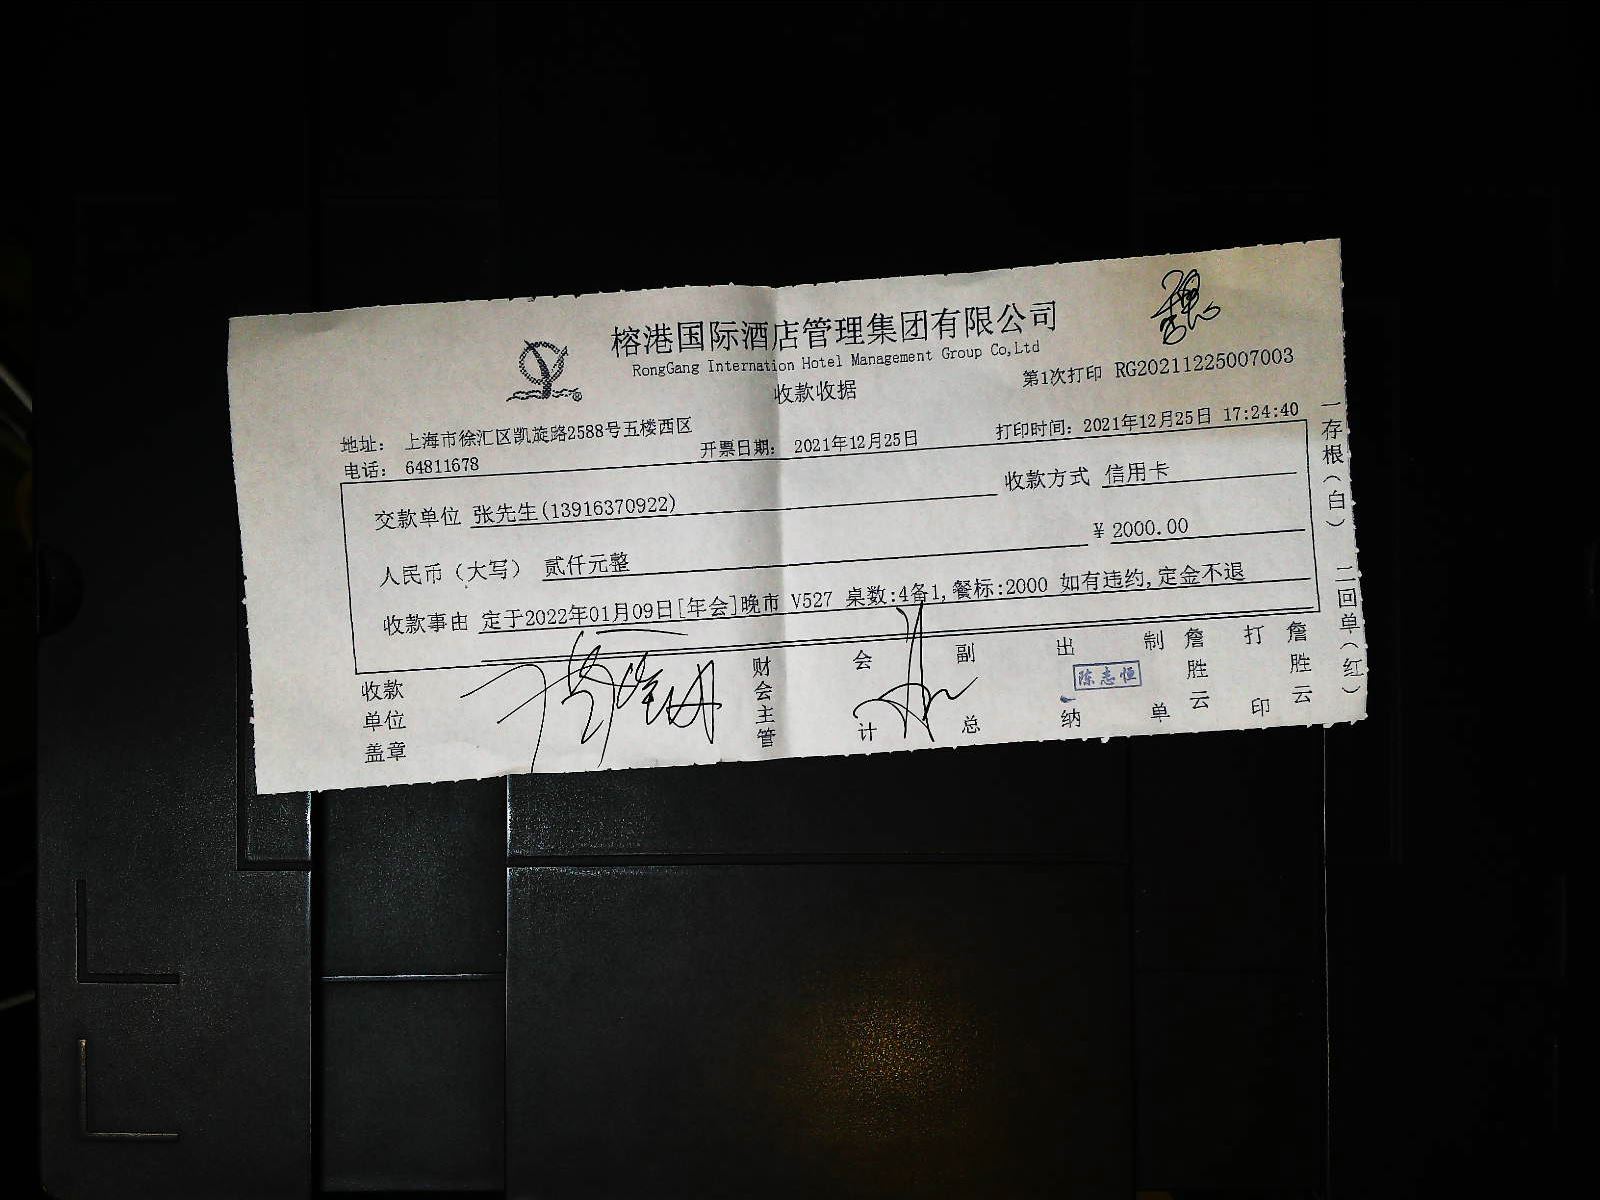 榕港国际酒店管理集团有限公司
RongGang Internation Hotel Management Group Co,Ltd
收款收据
第1次打印 RG20211225007003
地址: 上海市徐汇区凯旋路2588号五楼西区
电话: 64811678
开票日期: 2021年12月25日
打印时间: 2021年12月25日 17:24:40
交款单位 张先生(13916370922)
收款方式 信用卡
人民币(大写) 贰仟元整
¥ 2000.00
收款事由 定于2022年01月09日[年会]晚市 V527 桌数:4备1,餐标:2000 如有违约,定金不退
收款单位盖章
财会主管
会计
副总
出纳
陈志恒
制单
詹胜云
打印
詹胜云
一存根(白)
二回单(红)